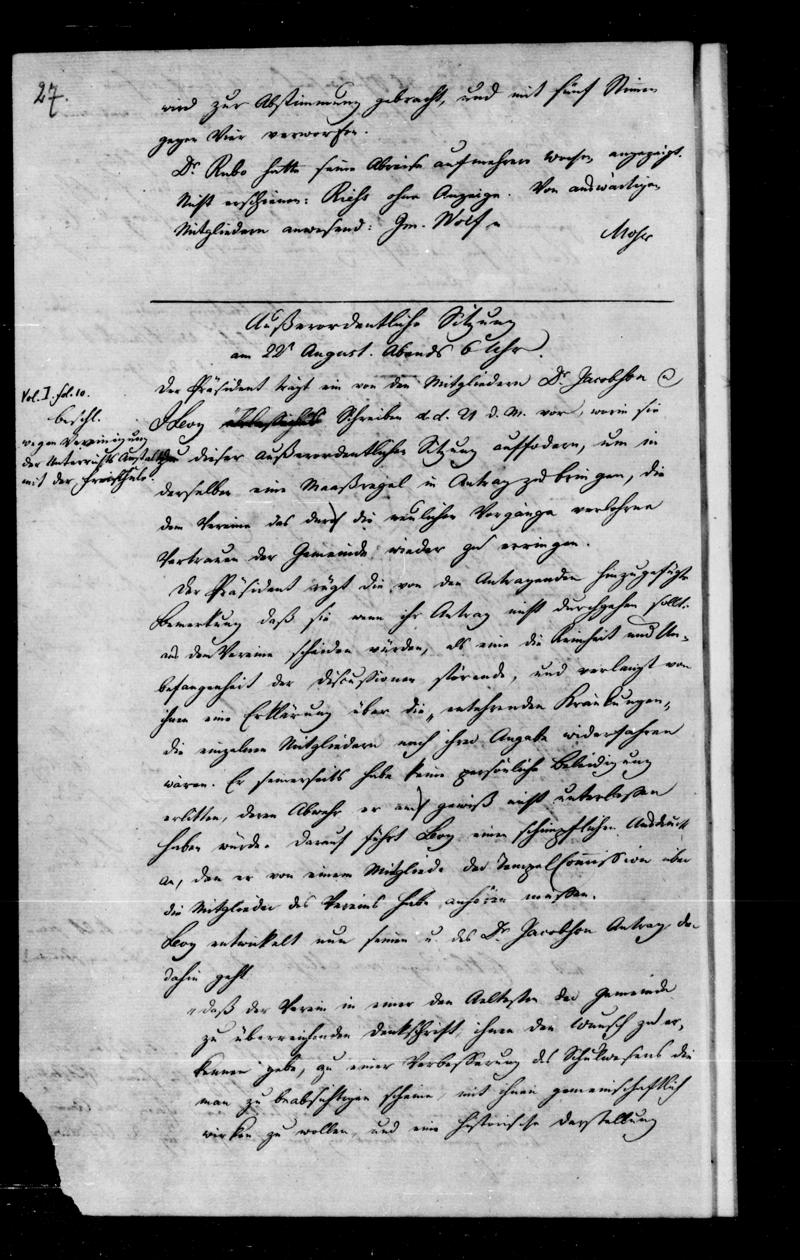 27.
wird zur Abstimmung gebracht, und mit fünf Stimmen
gegen Vier verworfen.
Dr Rubo hatte seine Abreise auf mehrere Wochen angezeigt.
Nicht erschienen: Riess ohne Anzeige. Von auswärtigen
Mitgliedern anwesend: Im. Wolf
Moser
Außerordentliche Sitzung
am 22t August. Abends 6 Uhr.
Vol. I. fol. 10.
beschl.
wegen Vereinigung
der Unterrichts Anstalt
mit der Freischule.
Der Präsident trägt ein von den Mitgliedern Dr Jacobson &
J Levy Schreiben d. d. 21 d. M. vor, worin sie
zu dieser außerordentlichen Sitzung auffodern, um in
derselben eine Maaßregel in Antrag zu bringen, die
dem Vereine das durch die neulichen Vorgänge verlohrne
Vertrauen der Gemeinde wieder zu erringen.
Der Präsident rügt die von den Antragenden hinzugefügte
Bemerkung daß sie wenn ihr Antrag nicht durchgehen sollte
aus dem Vereine scheiden würden, als eine die Reinheit und Un-
befangenheit der Discussionen störende, und verlangt von
ihnen eine Erklärung über die „entehrenden Kränkungen„
die einzelnen Mitgliedern nach ihrer Angabe widerfahren
wären. Er seinerseits habe keine persönliche Beleidigung
erlitten, deren Abwehr er auch gewiß nicht unterlassen
haben würde. Darauf führt Levy einen schimpflichen Ausdruck
an, den er von einem Mitgliede der Tempel Commission über
die Mitglieder des Vereins habe anhören müssen.
Levy entwickelt nun seinen u. des Dr Jacobson Antrag, der
dahin geht
„daß der Verein in einer den Aeltesten der Gemeinde
zu überreichenden Denkschrift, ihnen den Wunsch zu er-
kennen gebe, zu einer Verbesserung des Schulwesens die
man zu beabsichtigen scheine, mit ihnen gemeinschaftlich
wirken zu wollen, und eine historische Darstellung